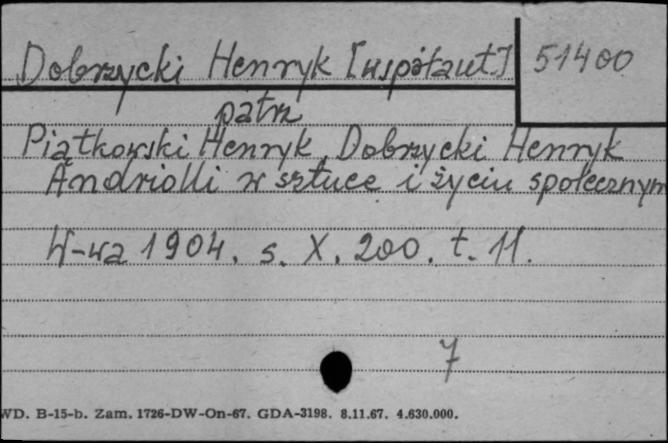 Dobrzycki Henryk [współaut.] 51400
patrz
Piątkowski Henryk, Dobrzycki Henryk
Andriolli w sztuce i życiu społecznym
W-wa 1904. s. X, 200. t. 11.
7
WD. B-15-b. Zam. 1726-DW-On-67. GDA-3198. 8.11.67. 4.630.000.